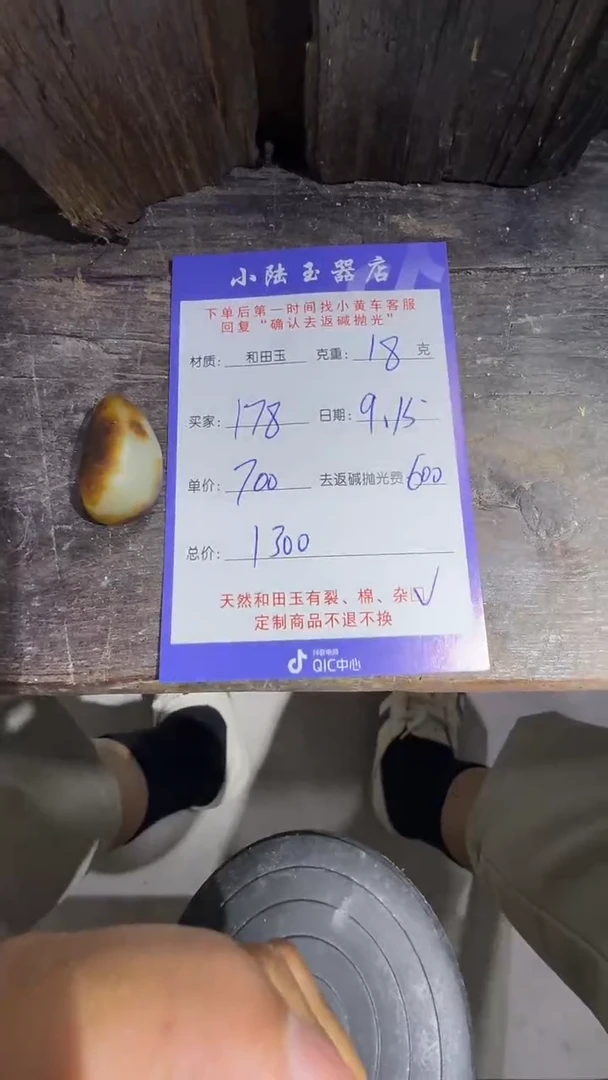 小陆玉器店
下单后第一时间找小黄车客服
回复“确认去返碱抛光”
材质: 和田玉 克重: 18 克
买家: 178 日期: 9.15
单价: 700 去返碱抛光费 600
总价: 1300
天然和田玉有裂、棉、杂
定制商品不退不换
抖音电商
QIC中心